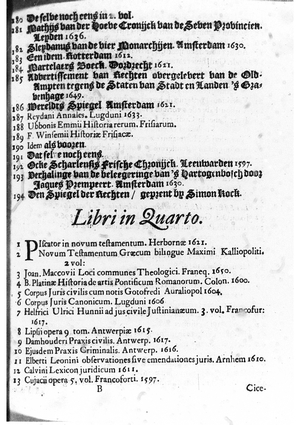 180 De selve noch eens in 2. vol.
181 Mathijs van der Hoeve Cronijck van de Seven Provincien.
Leyden 1636.
182 Slepdanus van die vier Monarchijen. Amsterdam 1630.
183 Een idem. Rotterdam 1612.
184 Martelaers Boeck. Dordrecht 1621.
185 Advertissement van Rechten overgelebert van de Old-
Ampten tegens de Staten van Stadt en Landen 's Gra-
venhage 1649.
186 Werelds Spiegel Amsterdam 1621.
187 Reydani Annales. Lugduni 1633.
188 Ubbonis Emmii Historia rerum. Frisiarum.
189 F Winsemii Historiæ Frisiacæ.
190 Idem als vooren.
191 Dat selve noch eens.
192 Ocke Scharlensis Frische Chronijck. Leeuwarden 1597.
193 Verhalinge van de belegeringe van 's Hartogenbosch door
Jaques Prempert. Amsterdam 1630.
194 Den Spiegel der Rechten / geprent by Simon Kock.
Libri in Quarto.
1 Piscator in novum testamentum. Herbornæ 1621.
2 Novum Testamentum Græcum bilingue Maximi Kalliopoliti,
2 vol:
3 Joan. Maccovii Loci communes Theologici. Franeq. 1650.
4 B. Platinæ Historia de artis Pontificum Romanorum. Colon. 1600.
5 Corpus Juris civilis cum notis Gotofredi. Auraliopol 1604.
6 Corpus Juris Canonicum. Lugduni 1606
7 Helfrici Ulrici Hunnii ad jus civile Justinianæum. 3. vol. Francofur:
1617.
8 Lipsii opera 9 tom. Antwerpi. 1615.
9 Damhouderi Praxis civilis. Antwerp. 1617.
10 Ejusdem Praxis Criminalis. Antwerp. 1616.
11 Elberti Leonini observationes sive emendationes juris. Arnhem 1610.
12 Calvini Lexicon juridicum 1611.
13 Cujacii opera 5, vol. Francoforti. 1597.
B Cice-